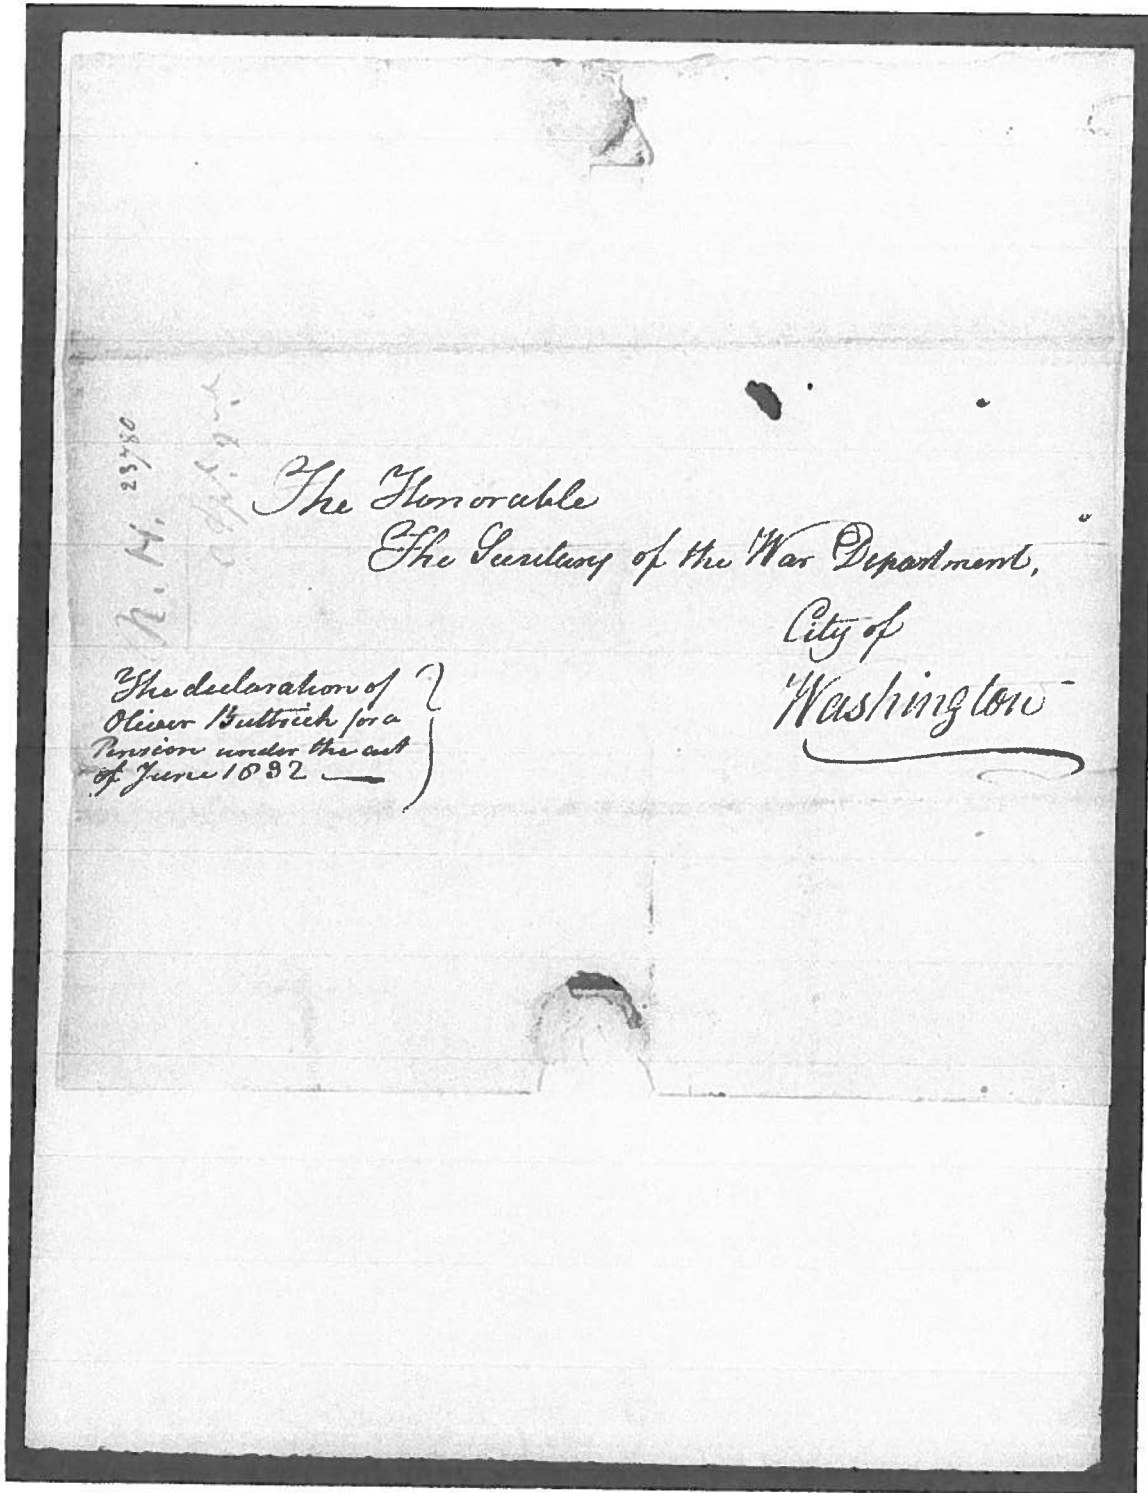 23780
N. H.
The Honorable
The Secretary of the War Department,
City of
Washington
The declaration of
Oliver Buttrick for a
Pension under the act
of June 1832